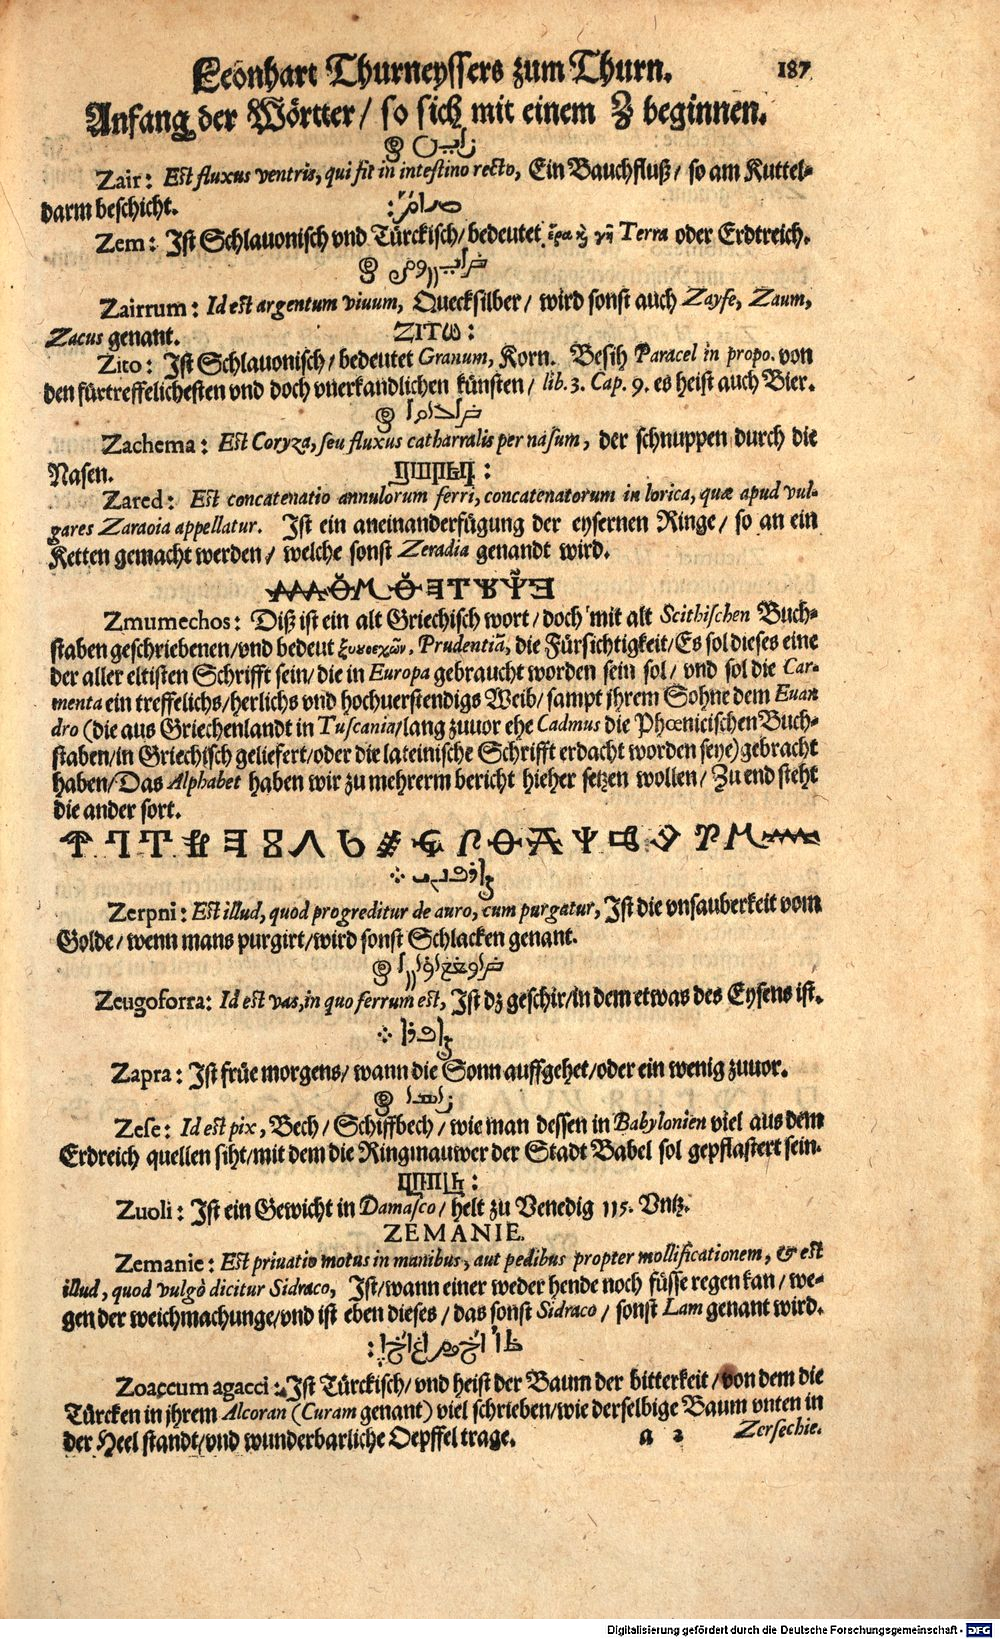 Leonhart Thurneyssers zum Thurn. 187
Anfang der Wörtter / so sich mit einem Z beginnen.
Zair: Est fluxus ventris, qui fit in intestino recto, Ein Bauchfluß / so am Kuttel-
darm beschicht.
Zem: Ist Schlauonisch vnd Türckisch / bedeutet Terra oder Erdtreich.
Zairrum: Id est argentum viuum, Quecksilber / wird sonst auch Zayfe, Zaum,
Zacus genant.
ZITω:
Zito: Ist Schlauonisch / bedeutet Granum, Korn. Besih Paracel in propo. von
den fürtreffelichesten vnd doch vnerkandlichen künsten / lib. 3. Cap. 9. es heist auch Bier.
Zachema: Est Coryza, seu fluxus catharralis per nasum, der schnuppen durch die
Nasen.
Zared: Est concatenatio annulorum ferri, concatenatorum in lorica, quæ apud vul-
gares Zaraoia appellatur. Ist ein aneinanderfügung der eysernen Ringe / so an ein
Ketten gemacht werden / welche sonst Zeradia genandt wird.
Zmumechos: Diß ist ein alt Griechisch wort / doch mit alt Scithischen Buch-
staben geschriebenen / vnd bedeut Prudentiã, die Fürsichtigkeit / Es sol dieses eine
der aller eltisten Schrifft sein / die in Europa gebraucht worden sein sol / vnd sol die Car-
menta ein treffelichs / herlichs vnd hochuerstendigs Weib / sampt jhrem Sohne dem Euan
dro (die aus Griechenlandt in Tuscania / lang zuuor ehe Cadmus die Phœnicischen Buch-
staben / in Griechisch geliefert / oder die lateinische Schrifft erdacht worden seye) gebracht
haben / Das Alphabet haben wir zu mehrerm bericht hieher setzen wollen / Zu end steht
die ander sort.
Zerpni: Est illud, quod progreditur de auro, cum purgatur, Ist die vnsauberkeit vom
Golde / wenn mans purgirt / wird sonst Schlacken genant.
Zeugoforra: Id est vas, in quo ferrum est, Ist dz geschir / in dem etwas des Eysens ist.
Zapra: Ist früe morgens / wann die Sonn auffgehet / oder ein wenig zuuor.
Zese: Id est pix, Bech / Schiffbech / wie man dessen in Babylonien viel aus dem
Erdreich quellen siht / mit dem die Ringmauwer der Stadt Babel sol gepflastert sein.
Zuoli: Ist ein Gewicht in Damasco / helt zu Venedig 115. Vntz.
ZEMANIE.
Zemanie: Est priuatio motus in manibus, aut pedibus propter mollificationem, & est
illud, quod vulgò dicitur Sidraco, Ist / wann einer weder hende noch füsse regen kan / we-
gen der weichmachunge / vnd ist eben dieses / das sonst Sidraco / sonst Lam genant wird.
Zoaccum agacci: Ist Türckisch / vnd heist der Baum der bitterkeit / von dem die
Türcken in jhrem Alcoran (Curam genant) viel schrieben / wie derselbige Baum vnten in
der Heel standt / vnd wunderbarliche Oepffel trage. a 2 Zersechie.
Digitalisierung gefördert durch die Deutsche Forschungsgemeinschaft - DFG